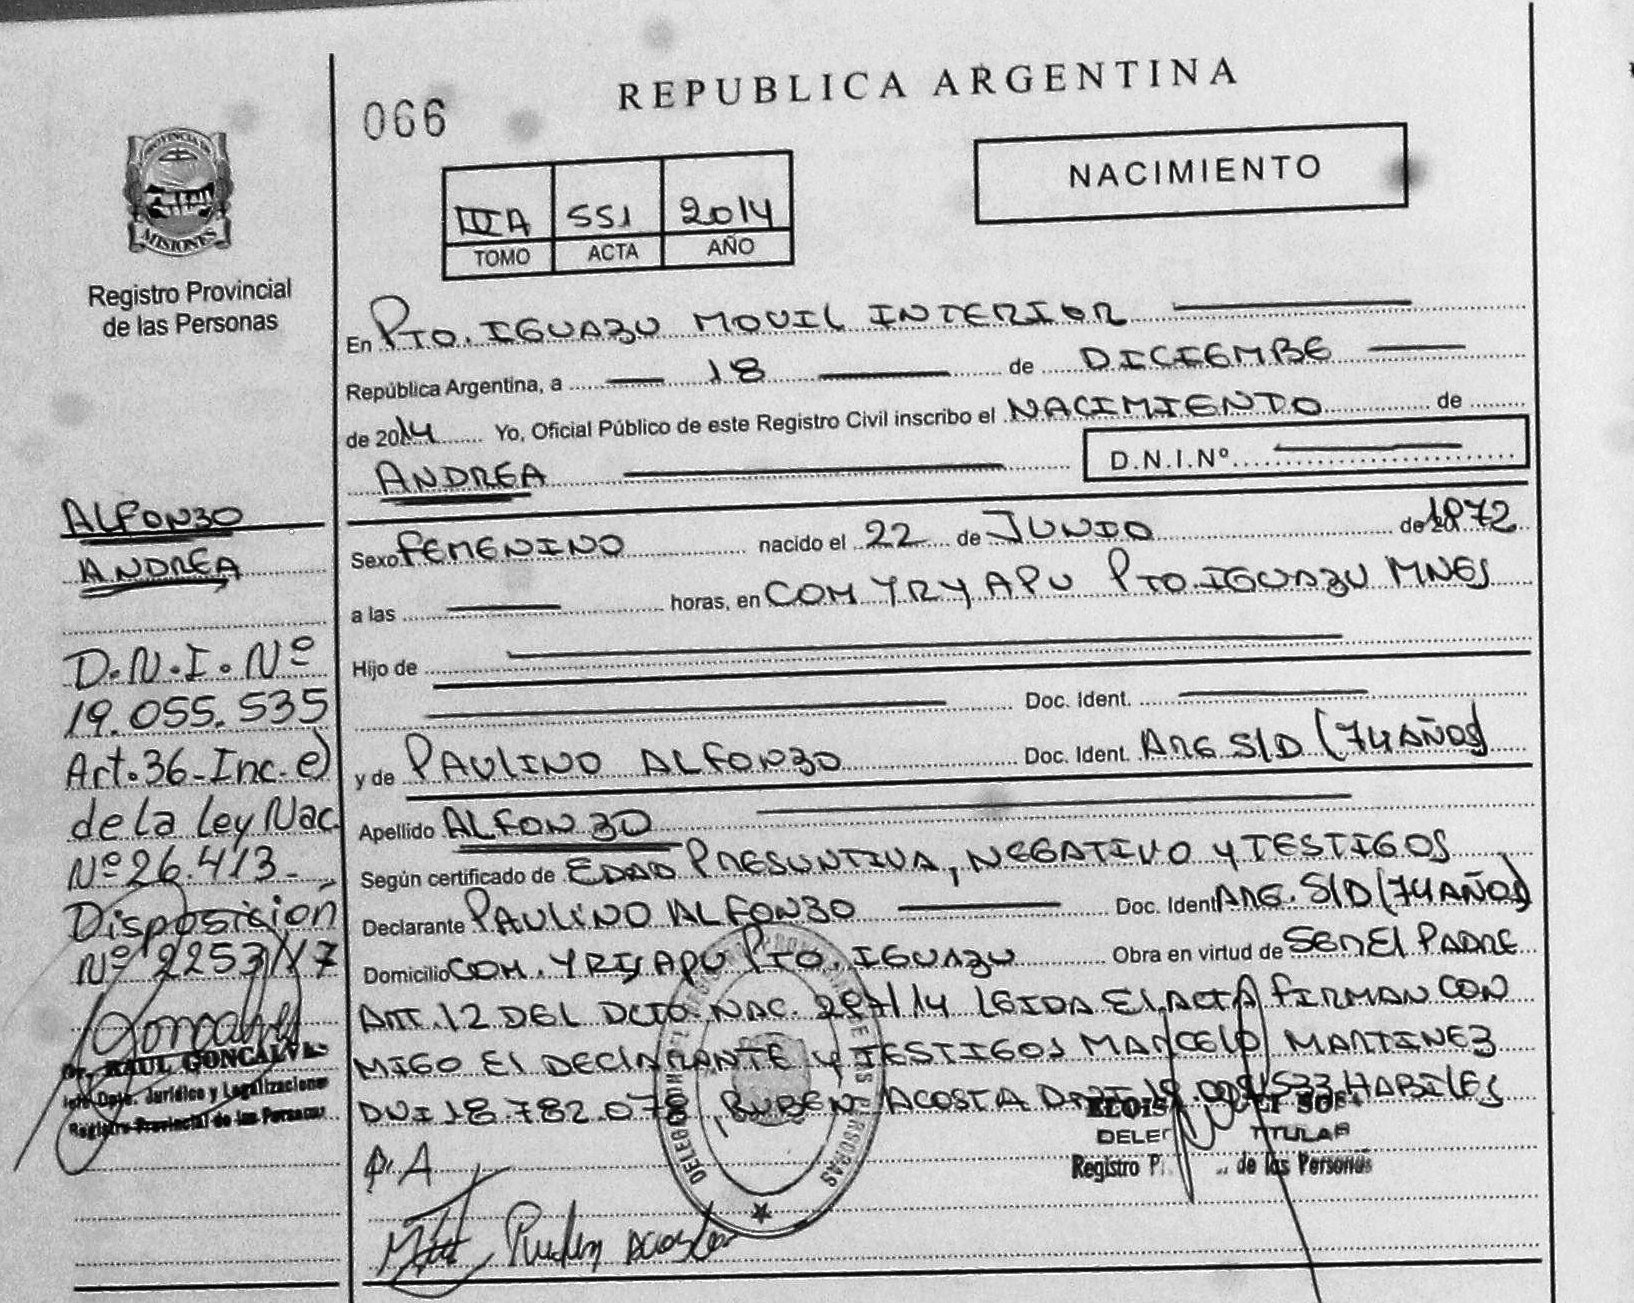 REPUBLICA ARGENTINA
066
NACIMIENTO
IIIA 551 2014
TOMO ACTA AÑO
PROVINCIA DE
MISIONES
Registro Provincial
de las Personas
En PTO. IGUAZU MOVIL INTERIOR
República Argentina, a 18 de DICIEMBRE
de 2014 Yo, Oficial Público de este Registro Civil inscribo el NACIMIENTO de
ANDREA D.N.I.Nº
Sexo FEMENINO nacido el 22 de JUNIO de 1972
a las horas, en COM YRYAPU PTO. IGUAZU MNES
Hijo de
Doc. Ident.
y de PAULINO ALFONZO Doc. Ident. ARG S/D (74 AÑOS)
Apellido ALFONZO
Según certificado de EDAD PRESUNTIVA, NEGATIVO Y TESTIGOS
Declarante PAULINO ALFONZO Doc. Ident ARG. S/D (74 AÑOS)
Domicilio COM. YRYAPU PTO. IGUAZU Obra en virtud de SER EL PADRE
ART. 12 DEL DCTO. NAC. 297/14 LEIDA EL ACTA FIRMAN CON
MIGO EL DECLARANTE Y TESTIGOS MARCELO MARTINEZ
DNI 18.782.078, RUBEN ACOSTA DNI HABILES
TITULAR
Registro de las Personas
P. A
Ruben Acosta
ALFONZO
ANDREA
D.N.I. Nº
19.055.535
Art. 36-Inc. e)
de la Ley Nac
Nº 26.413-
Disposición
Nº 2253/17
Goncalves
Dr. RAUL GONCALVES
Jefe Dpto. Jurídico y Legalizaciones
Registro Provincial de las Personas